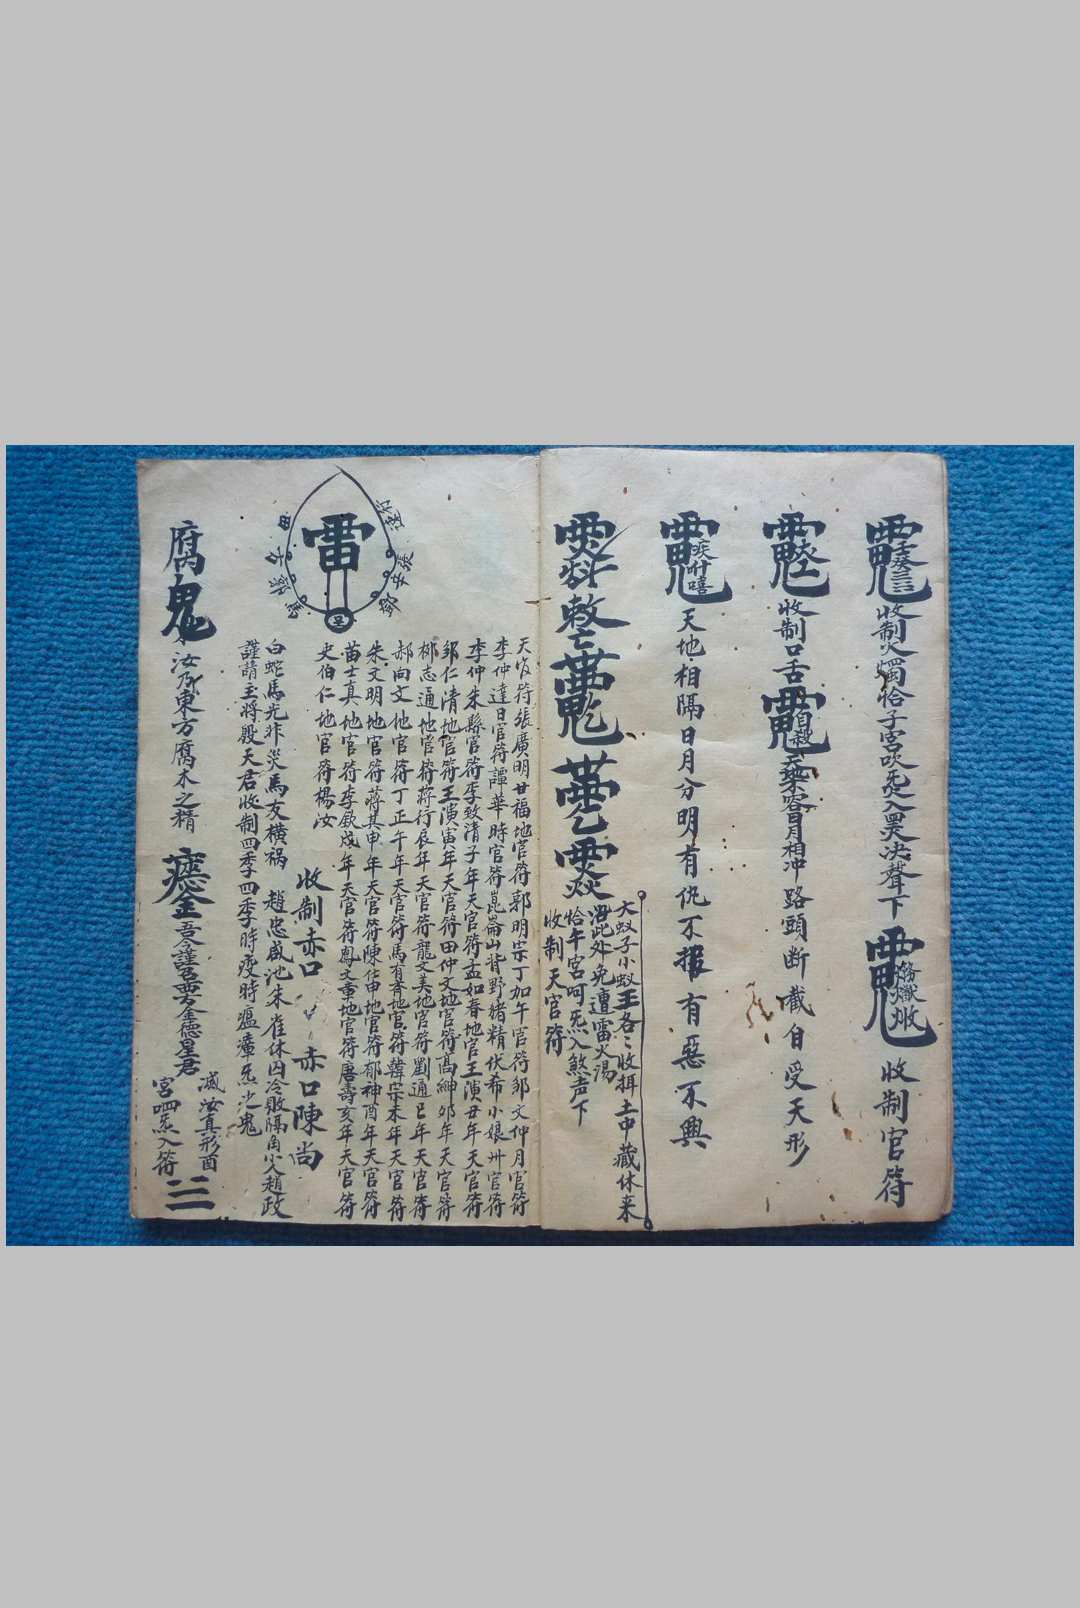 收制火燭恰子宮吹炁入罡决聲下
收制官符
收制口舌
日月相冲路頭断截自受天形
天地相隔日月分明有仇不報有惡不興
敕
大蚁子小蚁王各々收捐土中藏休来
此处免遭雷火湯
恰午宮呵炁入煞声下
收制天官符
雷
天官符張廣明廿福地官符郭明宗丁加午官符邹文仲月官符
李仲達日官符譚華時官符崑崙山背野猪精伏希小娘卅官符
李仲朱縣官符李致清子年天官符孟如春地官王演丑年天官符
邹仁清地官符王演寅年天官符田仲文地官符髙紳夘年天官符
柳志通地官符蒋行辰年天官符龍文美地官符劉通巳年天官符
郝向文地官符丁正午年天官符馬有青地官符韓宗未年天官符
朱文明地官符蒋其申年天官符陳仕申地官符郁神酉年天官符
苗士真地官符李欽戍年天官符鳳文章地官符唐壽亥年天官符
史伯仁地官符楊汝
收制赤口 赤口陳尚
白蛇馬光非災馬友横祸 趙忠咸池朱雀休囚冷敗隔角小人趙政
謹請主将殷天君收制四季四季時疫時瘟瘴炁少鬼
腐鬼 汝乃東方腐木之精
吾今謹召西方金德星君
滅汝真形酉
宮呬炁入符